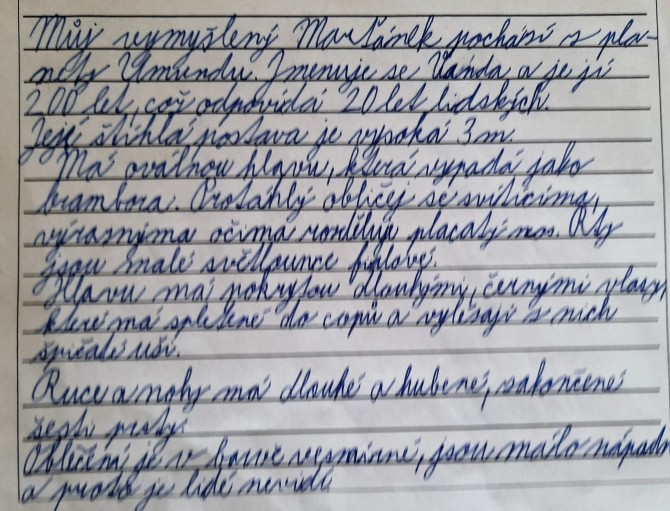 Můj vymyšlený Marťánek pochází z pla-
nety Umundu. Jmenuje se Vanda a je jí
200 let, což odpovídá 20 let lidských.
Její štíhlá postava je vysoká 3m.
Má oválnou hlavu, která vypadá jako
brambora. Protáhlý obličej se svítícíma,
výraznýma očima rozděluje placatý nos. Rty
jsou malé světlounce fialové.
Hlavu má pokrytou dlouhými, černými vlasy,
které má spletené do copů a vylézají z nich
špičaté uši.
Ruce a nohy má dlouhé a hubené, zakončené
šesti prsty.
Oblečení je v barvě vesmírné, jsou málo nápadn
a proto je lidé nevidí.